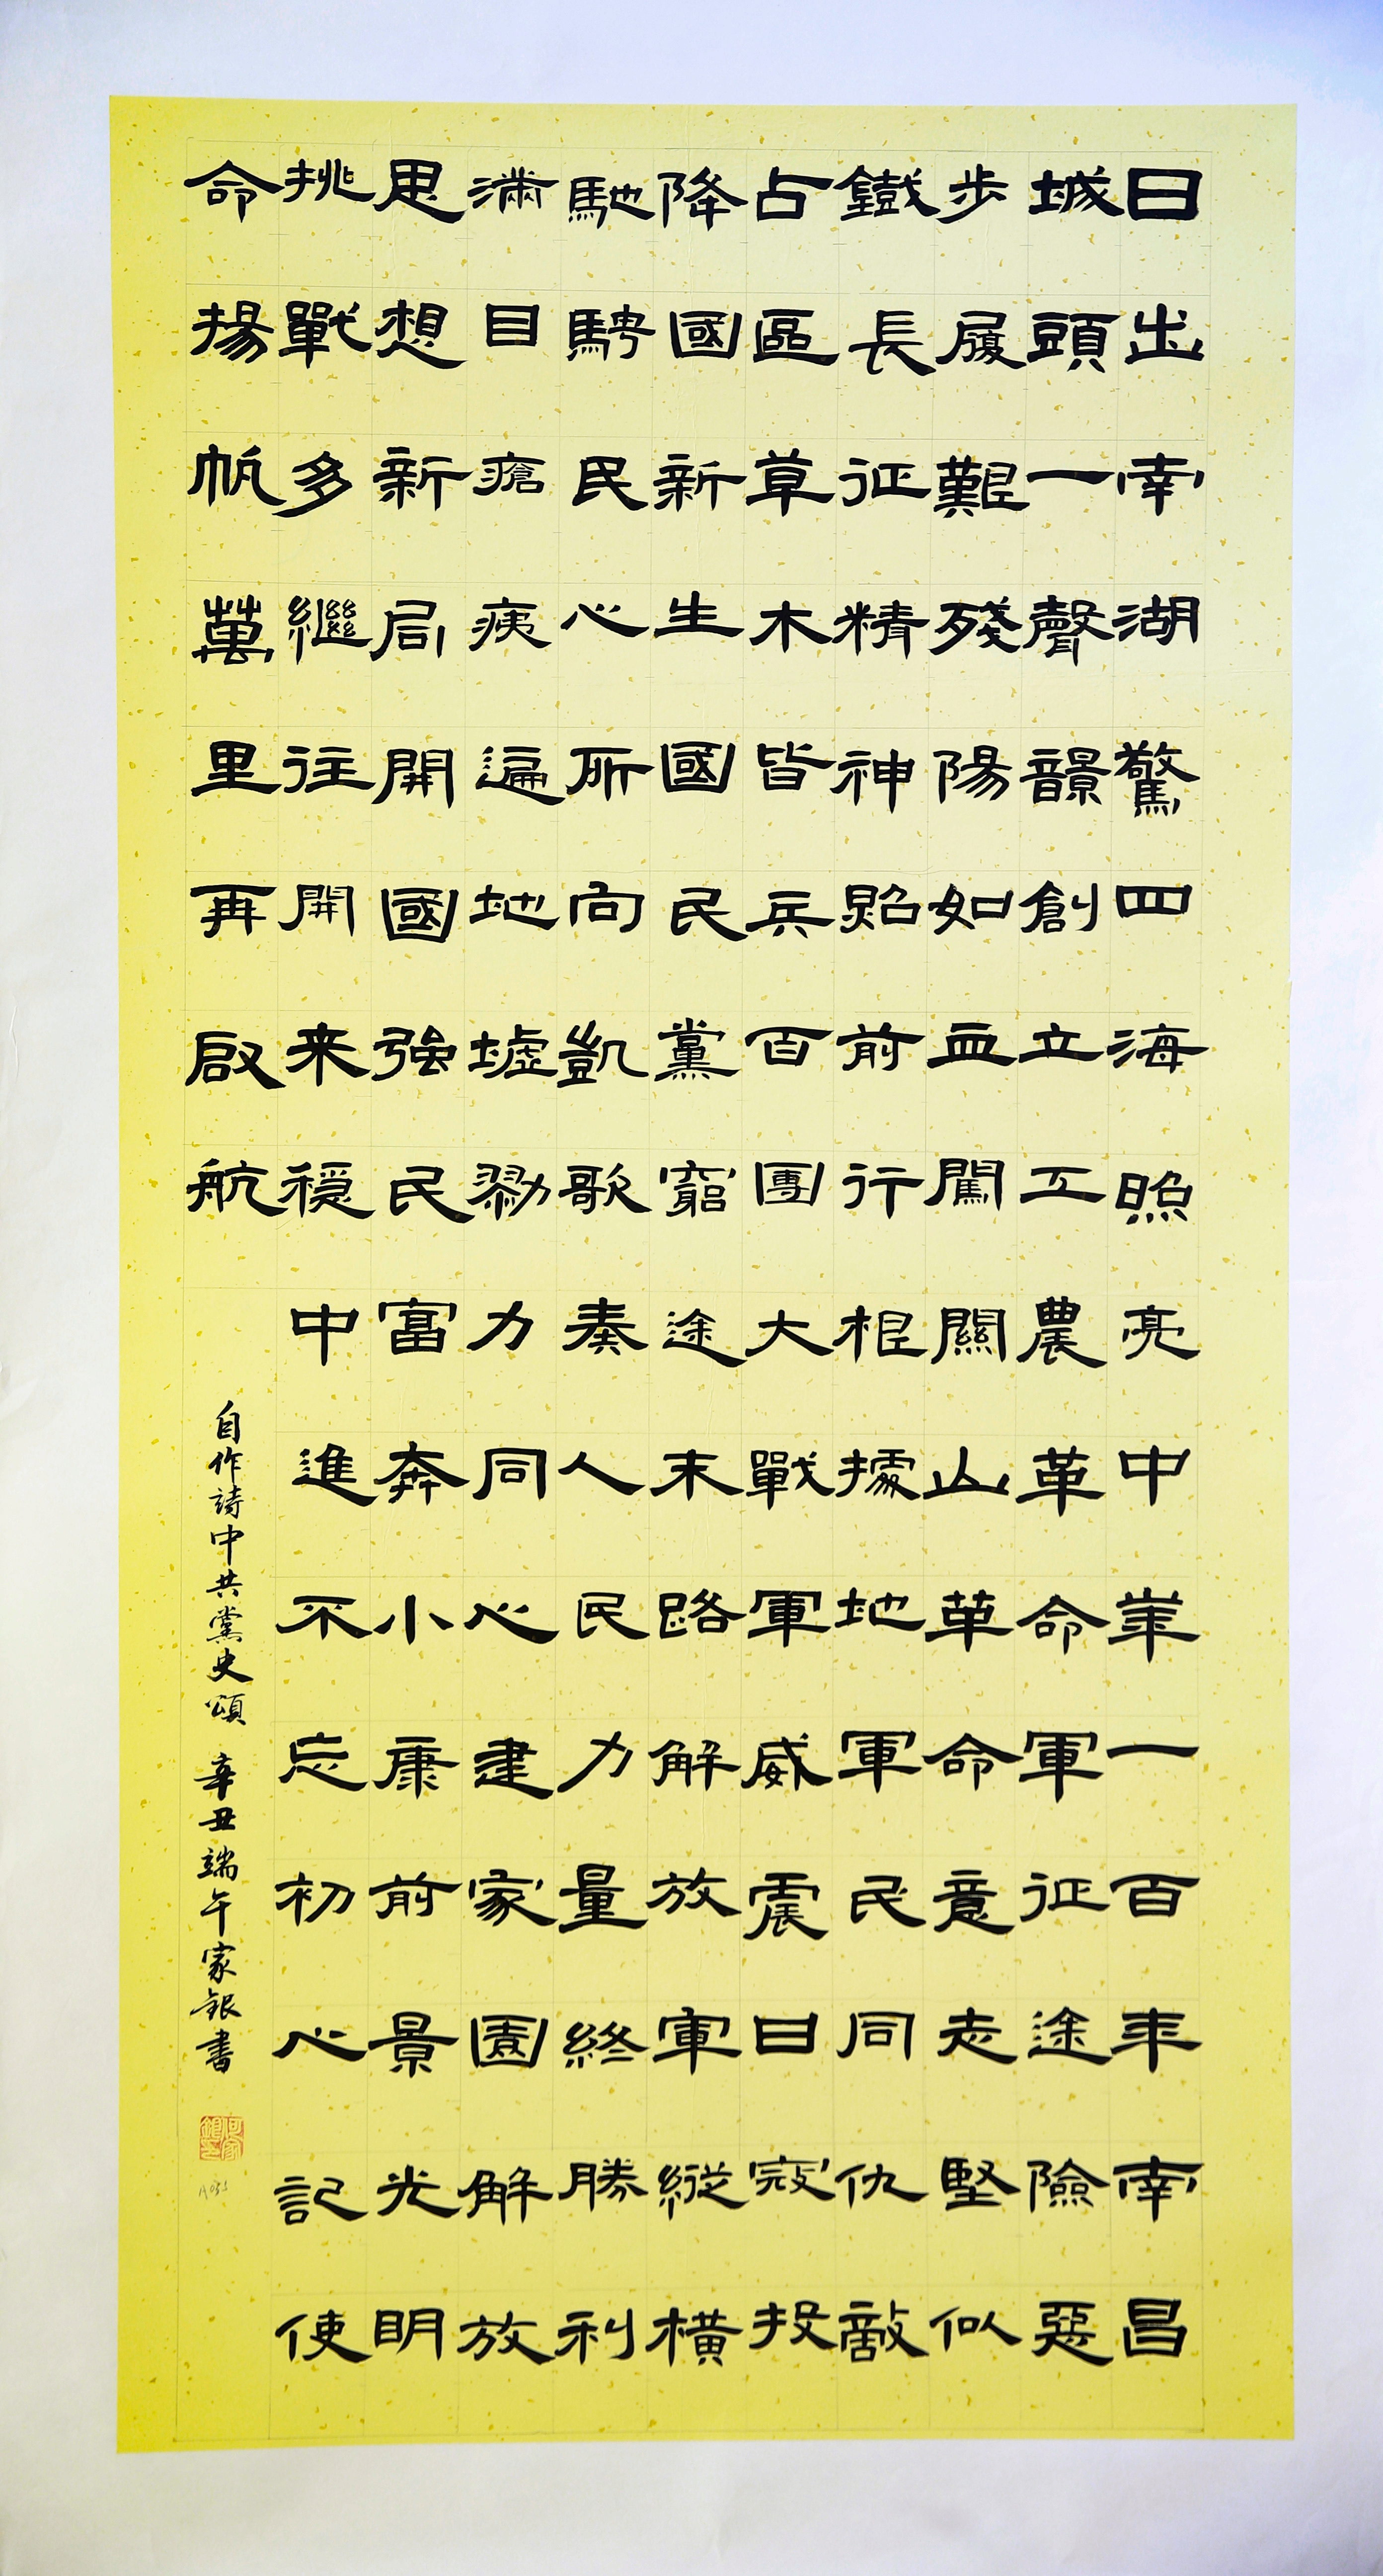 日出南湖驚四海照亮中華一百年南昌
城頭一聲韻創立工農革命軍征途險惡
步履艱殘陽如血闖關山革命意志堅似
鐵長征精神照前行根據地軍民同仇敵
占區草木皆兵百團大戰軍威震日寇投
降國新生國民黨窮途末路解放軍縱橫
馳騁民心所向凱歌奏人民力量終勝利
滿目瘡痍遍地墟勠力同心建家園解放
思想新局開國強民富奔小康前景光明
挑戰多繼往開来穩中進不忘初心記使
命揚帆萬里再啟航
自作詩中共黨史頌 辛丑端午家銀書
何家銀印
A035